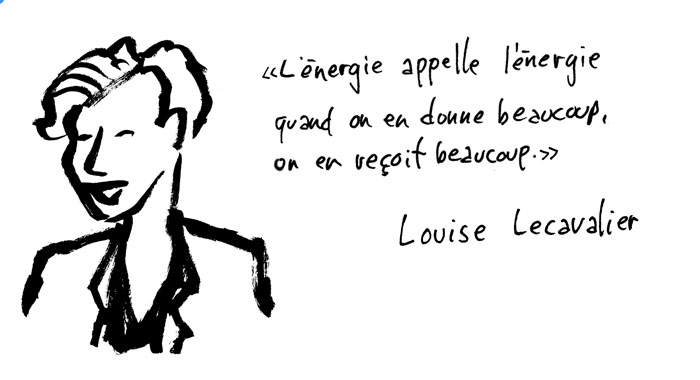 «L'énergie appelle l'énergie
quand on en donne beaucoup,
on en reçoit beaucoup.»
Louise Lecavalier